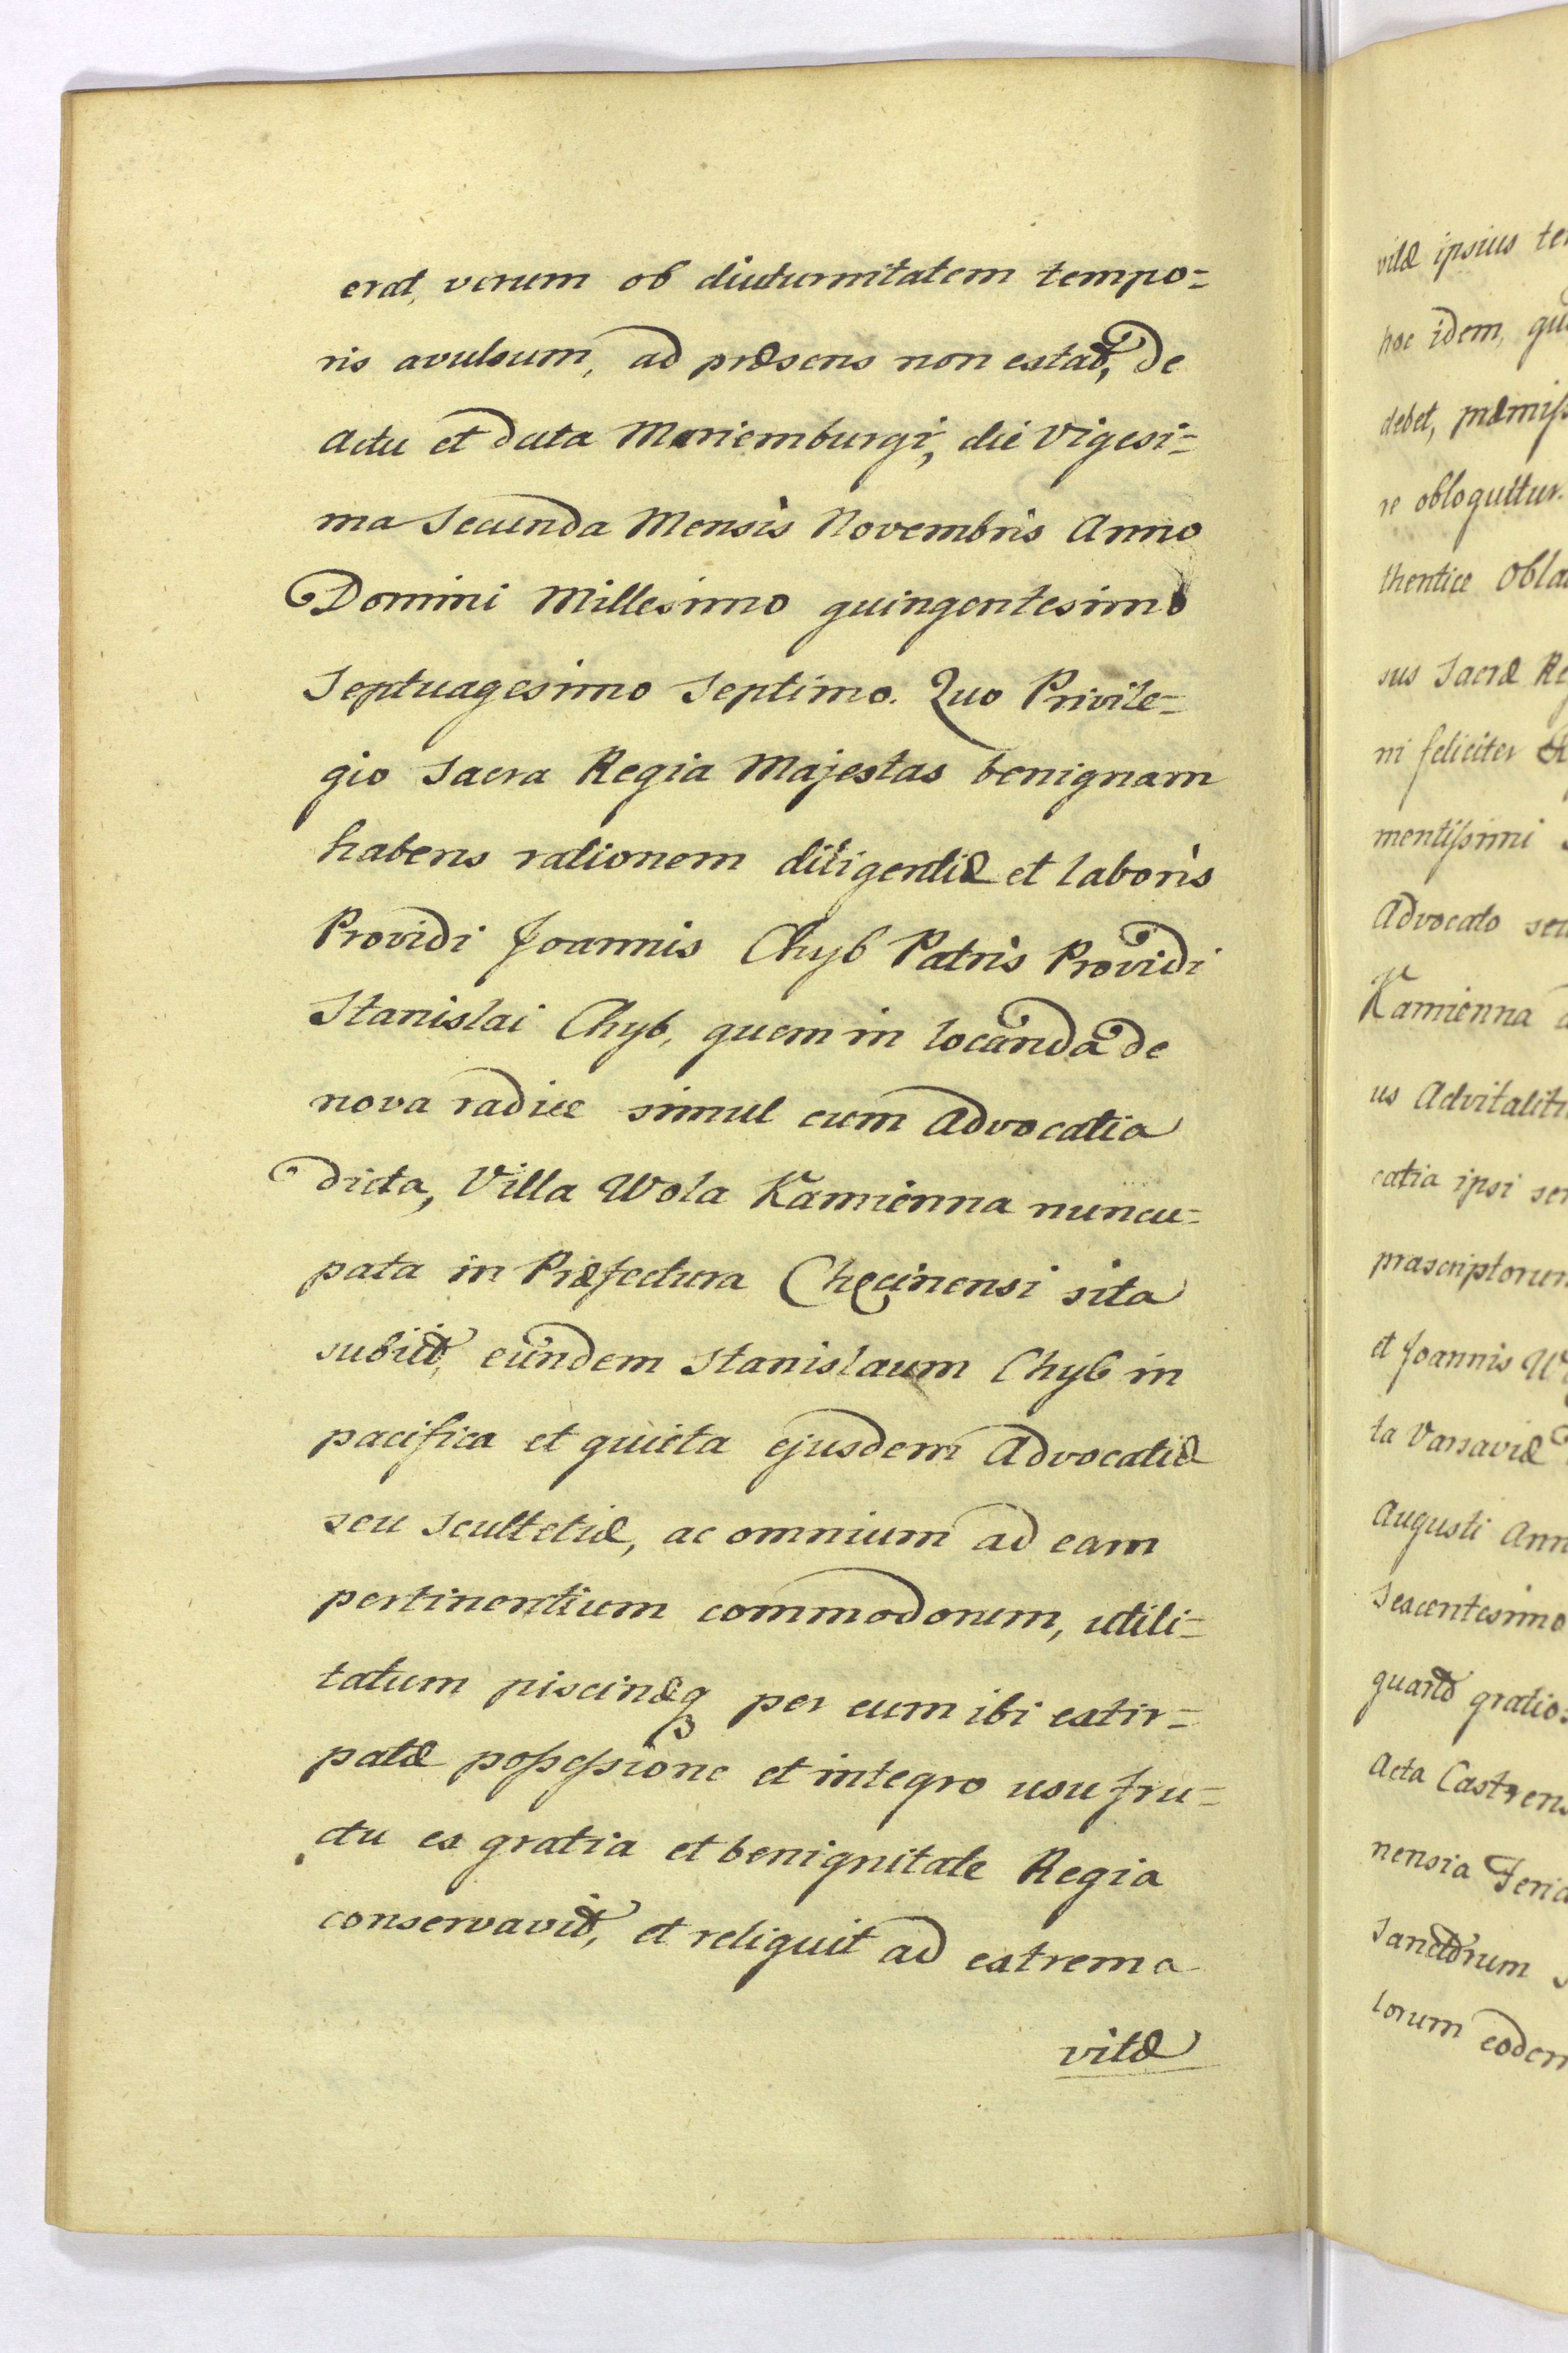 erat, verum ob diuturnitatem tempo=
ris avulsum, ad præsens non extat, de
actu et data Mariemburgi, die Vigesi=
ma Secunda Mensis Novembris Anno
Domini Millesimo quingentesimo
Septuagesimo Septimo. Quo Privile=
gio Sacra Regia Majestas benignam
habens rationem diligentiæ et laboris
Providi Joannis Chyb Patris Providi
Stanislai Chyb, quem in locanda de
nova radice simul cum Advocatia
dicta, Villa Wola Kamienna nuncu=
pata in Præfectura Chęcinensi sita
subiit, eundem Stanislaum Chyb in
pacifica et quieta ejusdem Advocatiæ
seu Scultetiæ, ac omnium ad eam
pertinentium commodorum, utili=
tatum piscinæq3 per eum ibi extir=
patæ possessione et integro usu fru=
ctu ex gratia et benignitate Regia
conservavit, et reliquit ad extrema
vitæ
vitæ ipsius te
hoc idem, qu
debet, præmiss
re obloquitur.
thentice Obla
sus Sacræ Re
ni feliciter
mentissimi
Advocato seu
Kamienna
us Advitaliti
catia ipsi ser
præscriptorum
et Joannis
ta Varsaviæ
Augusti Ann
Sexcentesimo
quarto gratio
Acta Castrens
nensia Feria
Sanctorum
lorum eodem